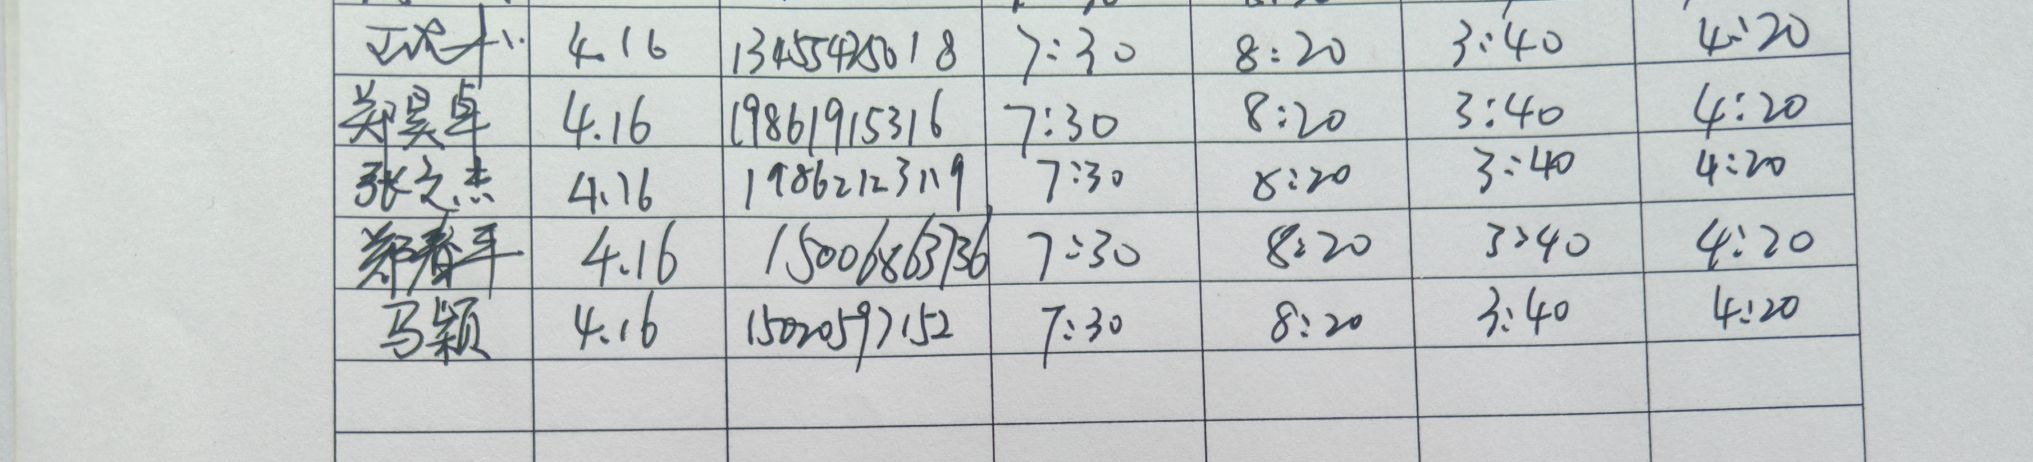 4.16 13455425018 7:30 8:20 3:40 4:20
郑昊卓 4.16 19861915316 7:30 8:20 3:40 4:20
张文杰 4.16 19862123119 7:30 8:20 3:40 4:20
郑春平 4.16 15006863736 7:30 8:20 3:40 4:20
马颖 4.16 15020597152 7:30 8:20 3:40 4:20